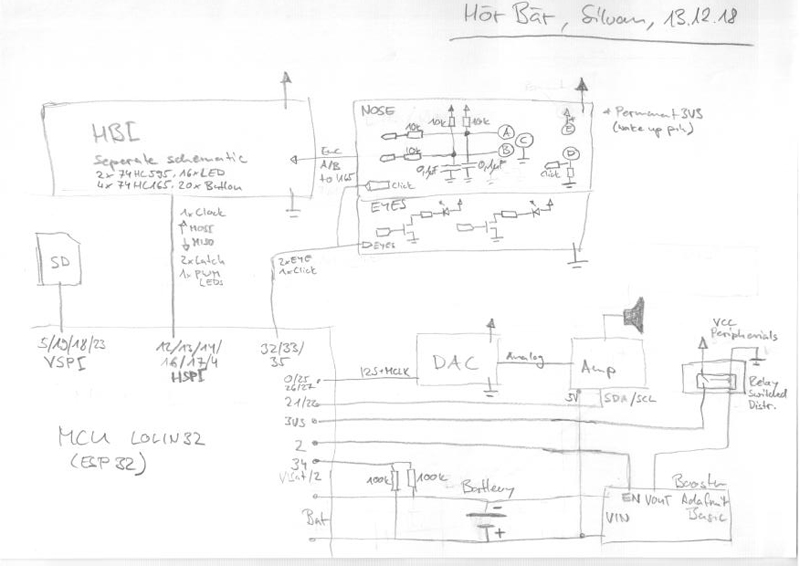 Hör Bär, Silvan, 13.12.18
HBI
Seperate schematic
2x 74HC595, 16xLED
4x 74HC165, 20x Button
Enc
A/B
to 165
NOSE
10k
10k
10k
10k
A
B
C
0,1µF
0,1µF
E
D
click
Click
* Permanent 3V3
(wake up pin)
EYES
EYES
1x Clock
MOSI
MISO
2xLatch
1x PWM
LEDs
2xEYE
1xClick
SD
5/19/18/23
VSPI
12/13/14/
16/17/4
HSPI
32/33/
35
MCU LOLIN32
(ESP32)
0/25
26/27
21/22
3V3
2
34
VBat/2
Bat
I2S+MCLK
DAC
Analog
Amp
5V
SDA/SCL
VCC
Peripherials
Relay
Switched
Distr.
100k
100k
Battery
-
+
Booster
EN VOUT Adafruit
VIN Basic